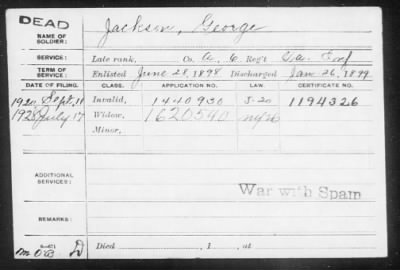 DEAD
Jackson, George
NAME OF SOLDIER:
SERVICE: Late rank, Co. A, 6 Reg't Inf
TERM OF SERVICE: Enlisted June 28, 1898 Discharged Jan 26, 1899
DATE OF FILING. CLASS. APPLICATION NO. LAW. CERTIFICATE NO.
1920 Sept. 11 Invalid, 1440930 J-20 1194326
1928 July 17 Widow, 1620540
Minor,
ADDITIONAL SERVICES:
War with Spain
REMARKS:
Died , 1 , at